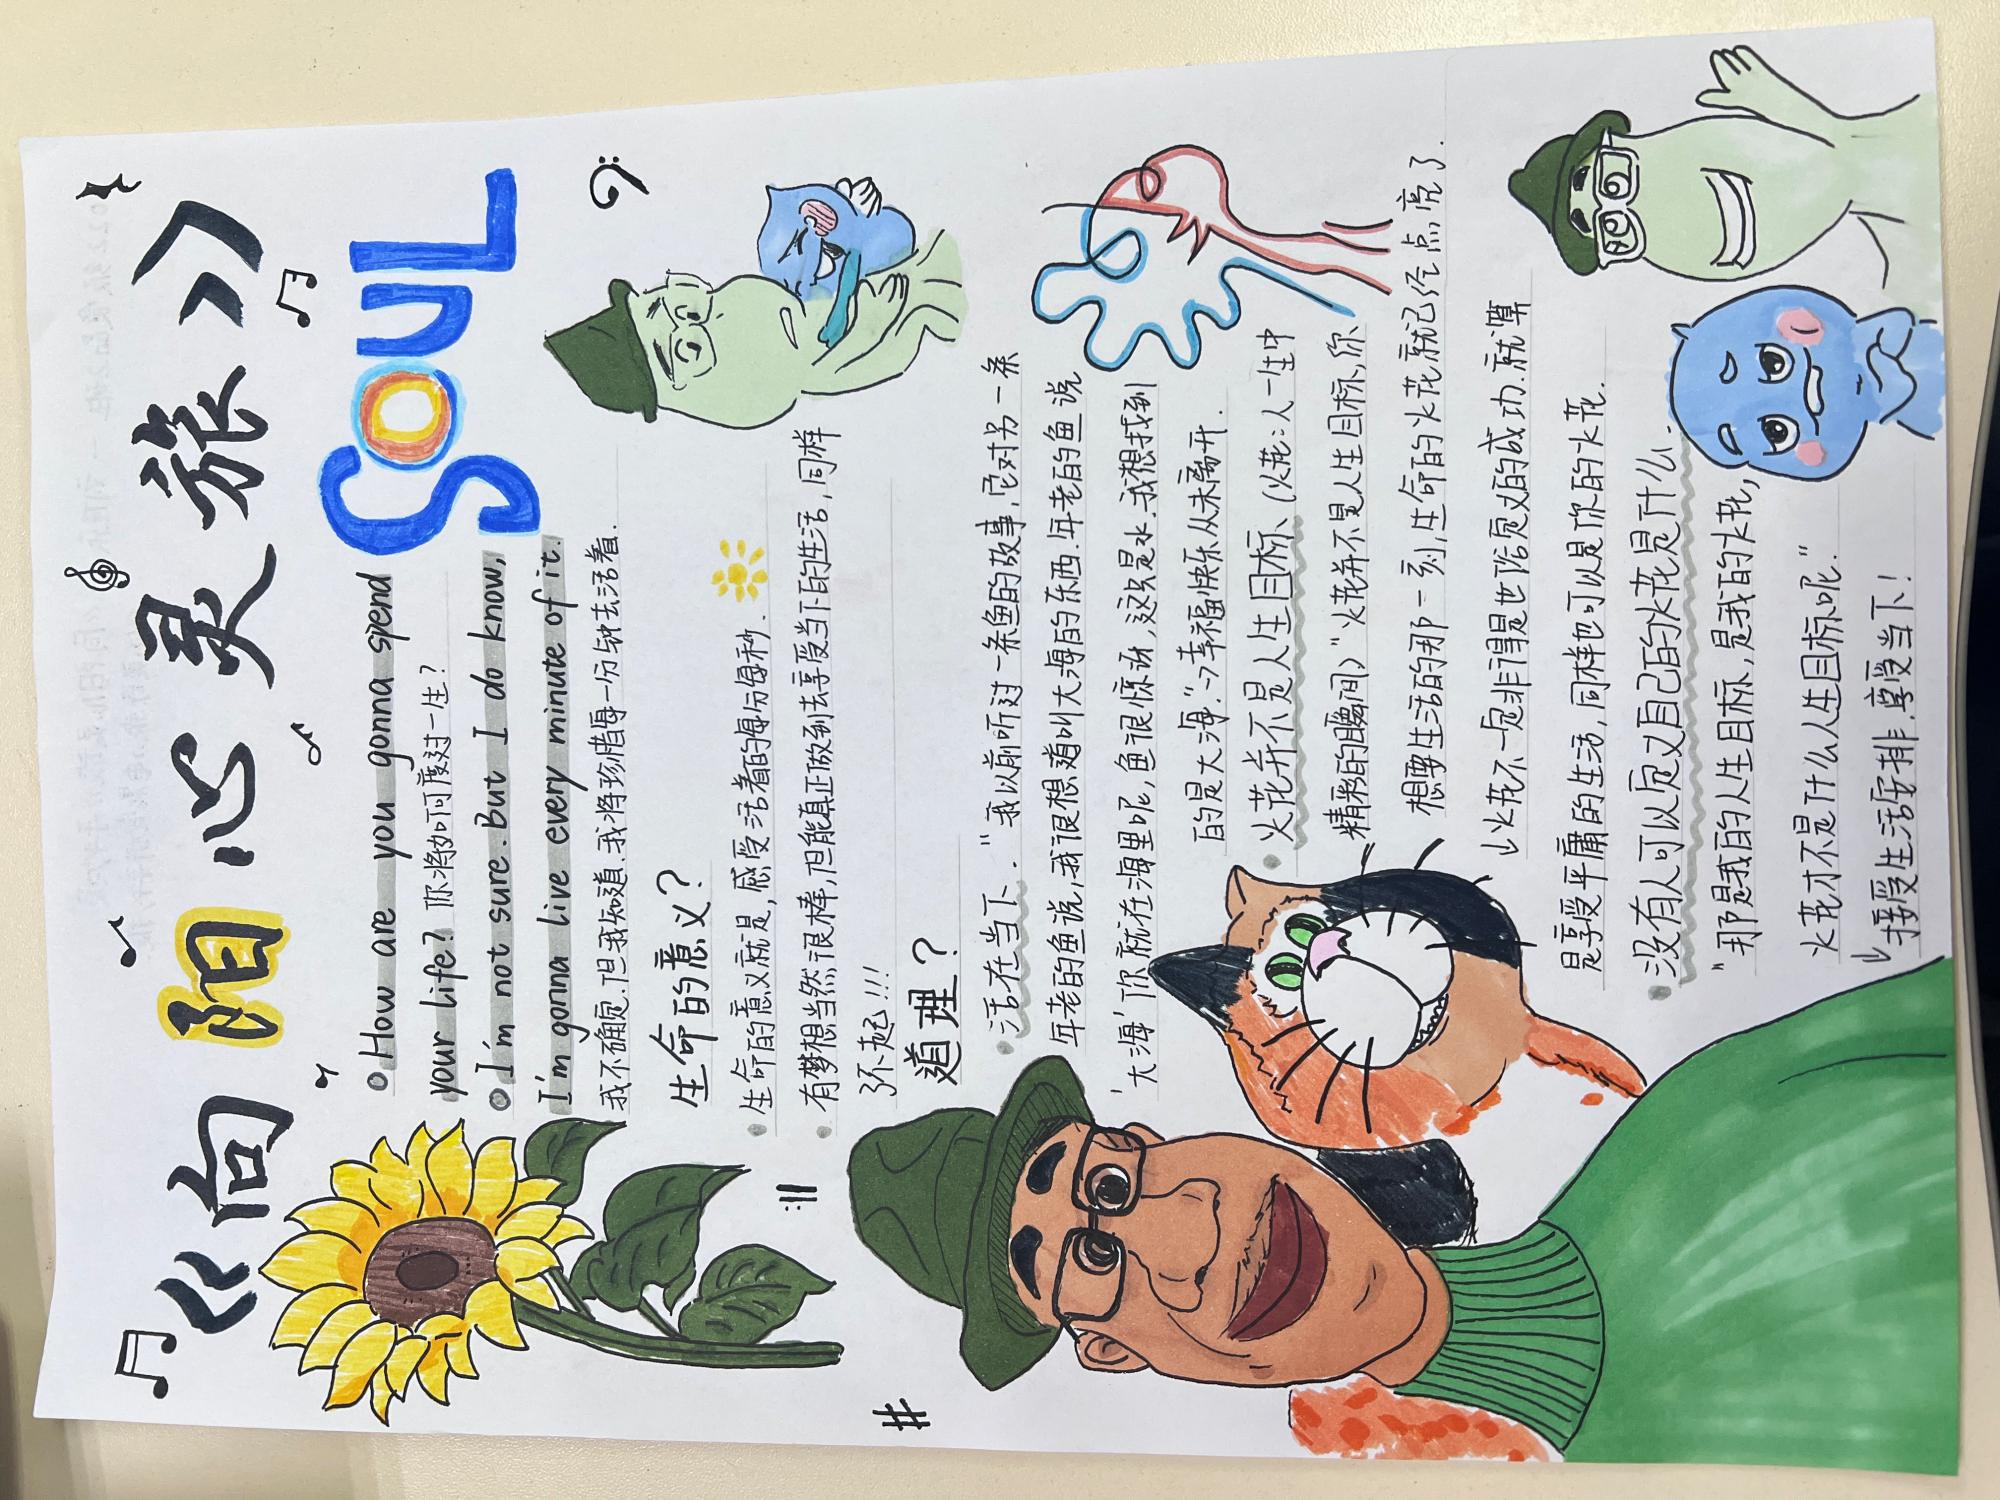 《向阳 心灵 旅》
SOUL
How are you gonna spend
your life? 你将如何度过一生?
I'm not sure. But I do know,
I'm gonna live every minute of it.
我不确定.但我知道.我将珍惜每一分钟去活着.
生命的意义?
生命的意义就是,感受活着的每分每秒.
有梦想当然很棒,但能真正做到去享受当下的生活,同样
了不起!!!
道理?
活在当下."我以前听过一条鱼的故事,它对另一条
年老的鱼说,我很想趟叫大海的东西.年老的鱼说
'大海'?你就在海里呢,鱼很惊讶,这只是水.我想找到
的是大海."→幸福快乐从未离开.
火花并不是人生目标.(火花:人一生中
精彩的瞬间)"火花并不是人生目标,你
想要生活的那一刻,生命的火花就已经点亮了.
↳火花不一定非得是世俗定义的成功.就算
是享受平庸的生活,同样也可以是你的火花.
没有人可以定义自己的火花是什么.
"那是我的人生目标,是我的火花,
火花才不是什么人生目标呢."
↳接受生活安排.享受当下!